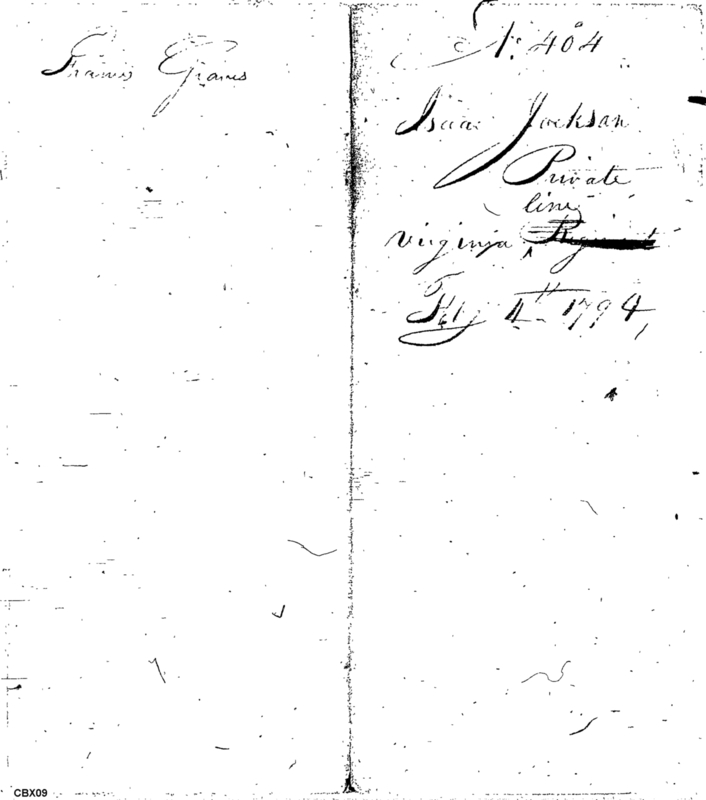 Francis Graves
No. 404
Isaac Jackson
Private
line
Virginia Regiment
Feby 4th 1794,
CBX09